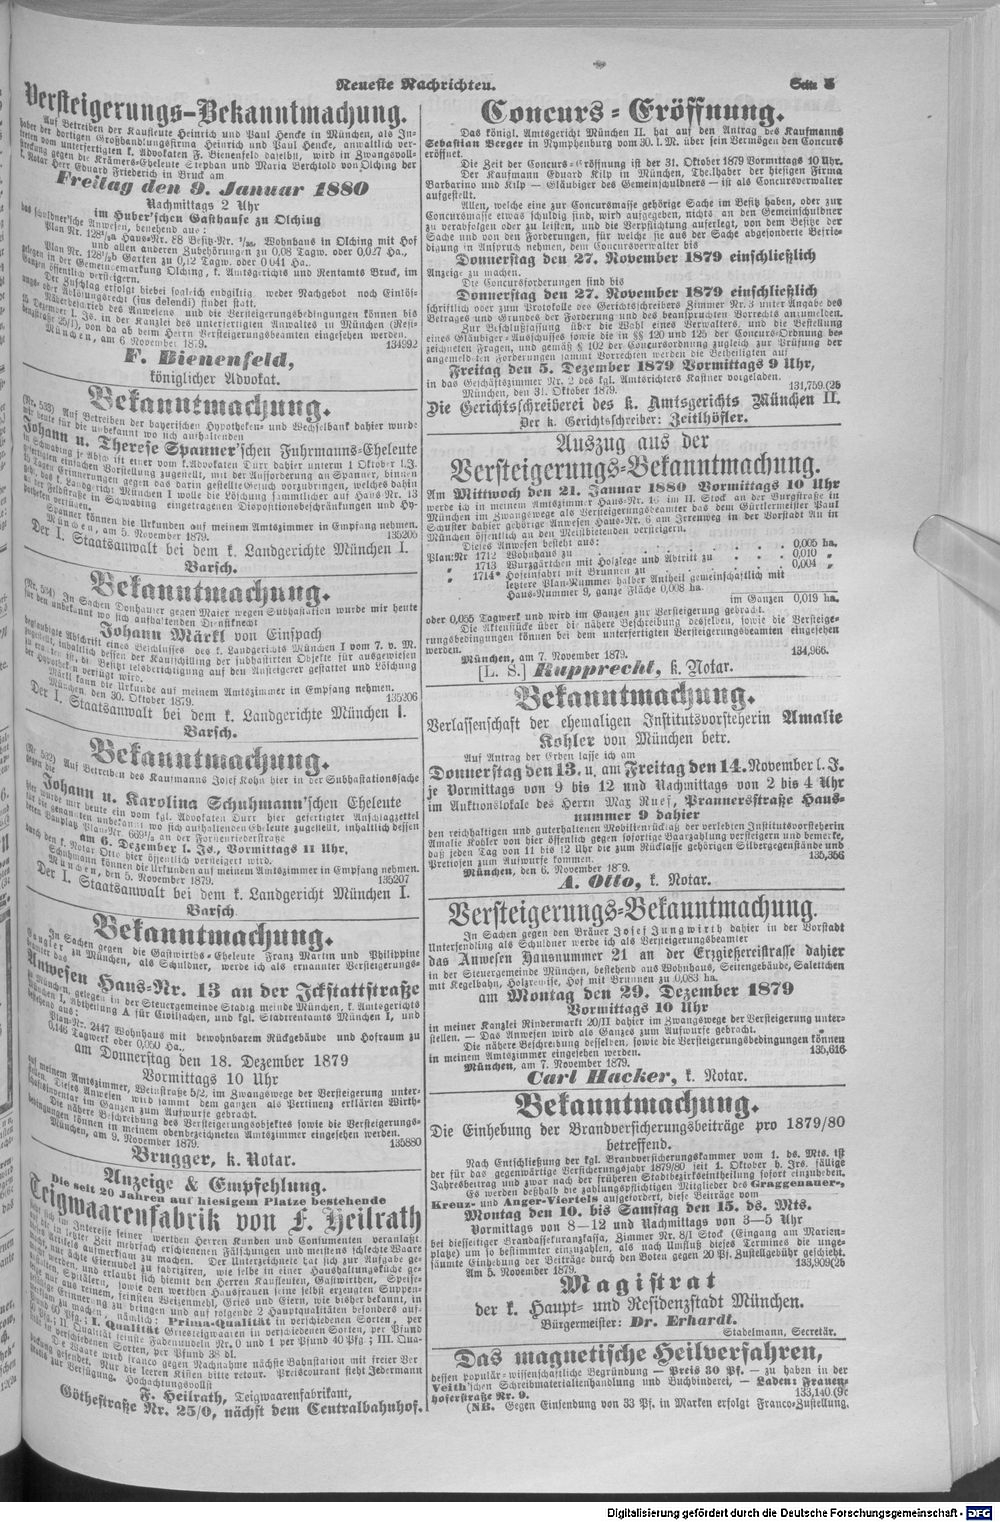 Neueste Nachrichten.
Seite 5
Versteigerungs-Bekanntmachung.
Auf Betreiben der Kaufleute Heinrich und Paul Hencke in München, als In-
haber der dortigen Großhandlungsfirma Heinrich und Paul Hencke, anwaltlich ver-
treten vom unterfertigten k. Advokaten F. Bienenfeld daselbst, wird in Zwangsvoll-
streckung gegen die Krämers-Eheleute Stephan und Maria Berchtold von Olching der
k. Notar Herr Eduard Friederich in Bruck am
Freitag den 9. Januar 1880
Nachmittags 2 Uhr
im Huber'schen Gasthause zu Olching
das schuldner'sche Anwesen, bestehend aus:
Plan Nr. 128¹/₂a Haus-Nr. 88 Besitz-Nr. Wohnhaus in Olching mit Hof
und allen anderen Zubehörungen zu 0,08 Tagw. oder 0,027 Ha.,
Plan Nr. 128¹/₂b Garten zu 0,12 Tagw. oder 0,041 Ha.
gelegen in der Gemeindemarkung Olching, k. Amtsgerichts und Rentamts Bruck, im
Ganzen öffentlich versteigern.
Der Zuschlag erfolgt hiebei sogleich endgiltig, weder Nachgebot noch Einlös-
ungs- oder Ablösungsrecht (jus delendi) findet statt.
Näherbeschrieb des Anwesens und die Versteigerungsbedingungen können bis
15 Dezember l. Js. in der Kanzlei des unterfertigten Anwaltes in München (Resi-
denzstraße 25/I), von da ab beim Herrn Versteigerungsbeamten eingesehen werden.
München, am 6 November 1879. 134992
F. Bienenfeld,
königlicher Advokat.
Bekanntmachung.
(Nr. 533) Auf Betreiben der bayerischen Hypotheken- und Wechselbank dahier wurde
mir heute für die unbekannt wo sich aufhaltenden
Johann u. Therese Spanner'schen Fuhrmanns-Eheleute
in Schwabing je Abschrift einer vom k. Advokaten Dürr dahier unterm 1 Oktober l. J.
gefertigten einfachen Vorstellung zugestellt, mit der Aufforderung an Spanner, binnen
8 Tagen Erinnerungen gegen das darin gestellte Gesuch vorzubringen, welches dahin
geht, das k. Landgericht München I wolle die Löschung sämmtlicher auf Haus Nr. 13
an der Feldstraße in Schwabing eingetragenen Dispositionsbeschränkungen und Hy-
potheken verfügen.
Spanner können die Urkunden auf meinem Amtszimmer in Empfang nehmen.
München, am 5. November 1879. 135205
Der I. Staatsanwalt bei dem k. Landgerichte München I.
Barsch.
Bekanntmachung.
(Nr. 534) In Sachen Donhauser gegen Maier wegen Subhastation wurde mir heute
für den unbekannt wo sich aufhaltenden Dienstknecht
Johann Märkl von Einspach
beglaubigte Abschrift eines Beschlusses des k. Landgerichts München I vom 7. v. M.
zugestellt, inhaltlich dessen der Kaufschilling der subhastirten Objekte für ausgewiesen
erachtet ist, die Besitztitelsberichtigung auf den Ansteigerer gestattet und Löschung
der Hypothek verfügt wird.
Märkl kann die Urkunde auf meinem Amtszimmer in Empfang nehmen.
München, den 30. Oktober 1879. 135206
Der I. Staatsanwalt bei dem k. Landgerichte München I.
Barsch.
Bekanntmachung.
(Nr. 532) Auf Betreiben des Kaufmanns Josef Kohn hier in der Subhastationssache
gegen die
Johann u. Karolina Schuhmann'schen Eheleute
hier wurde mir heute ein vom kgl. Advokaten Dürr hier gefertigter Anschlagzettel
für die genannten unbekannt wo sich aufhaltenden Eheleute zugestellt, inhaltlich dessen
deren Bauplatz Plan-Nr. 669¹/₂ an der Forheuriederstraße
am 6. Dezember l. Js., Vormittags 11 Uhr,
durch den k. Notar Otto hier öffentlich versteigert wird.
Schuhmann können die Urkunde auf meinem Amtszimmer in Empfang nehmen.
München, den 5. November 1879. 135207
Der I. Staatsanwalt bei dem k. Landgericht München I.
Barsch
Bekanntmachung.
In Sachen gegen die Gastwirths-Eheleute Franz Martin und Philippine
Gaugler zu München, als Schuldner, werde ich als ernannter Versteigerungs-
beamter das
Anwesen Haus-Nr. 13 an der Ickstattstraße
in München, gelegen in der Steuergemeinde Stadtgemeinde München, k. Amtsgerichts
München I, Abtheilung A für Civilsachen, und kgl. Stadtrentamts München I, und
bestehend aus:
Plan-Nr. 2447 Wohnhaus mit bewohnbarem Rückgebäude und Hofraum zu
0,146 Tagwerk oder 0,050 Ha.,
am Donnerstag den 18. Dezember 1879
Vormittags 10 Uhr
auf meinem Amtszimmer, Weinstraße 5/2, im Zwangswege der Versteigerung unter-
stellen. Dieses Anwesen wird sammt dem ganzen als Pertinenz erklärten Wirth-
schaftsinventar im Ganzen zum Aufwurfe gebracht.
Die nähere Beschreibung des Versteigerungsobjektes sowie die Versteigerungs-
bedingungen können in meinem obenbezeichneten Amtszimmer eingesehen werden.
München, am 9. November 1879. 135880
Brugger, k. Notar.
Anzeige & Empfehlung.
Die seit 20 Jahren auf hiesigem Platze bestehende
Teigwaarenfabrik von F. Heilrath
sieht sich im Interesse seiner werthen Herren Kunden und Consumenten veranlaßt,
auf in letzter Zeit mehrfach erschienenen Fälschungen und meistens schlechte Waare
aufmerksam zu machen. Der Unterzeichnete hat sich zur Aufgabe ge-
macht, nur ächte Eiernudel zu fabriziren, wie selbe in einer Haushaltungsküche ge-
macht werden, und erlaubt sich hiemit den Herren Kaufleuten, Gastwirthen, Speise-
Spitälern, sowie den werthen Hausfrauen seine selbst erzeugten Suppen-
aus reinem, feinsten Weizenmehl, Gries und Eiern, wie bisher bekannt, in
Erinnerung zu bringen und auf folgende 2 Hauptqualitäten besonders auf-
merksam zu machen, nämlich: Prima-Qualität in verschiedenen Sorten, per
Pfund 60 Pfg.; I. Qualität Griesteigwaaren in verschiedenen Sorten, per Pfund
II. Qualität feinste Fadennudeln Nr. 0 und 1 per Pfund 40 Pfg; III. Qua-
Sorten, per Pfund 38 dl.
Die Waare wird franco gegen Nachnahme nächste Bahnstation mit freier Ver-
packung gesendet. Nur die leeren Kisten bitte retour. Preiscourant steht Jedermann
gratis zur Verfügung. Hochachtungsvollst
F. Heilrath, Teigwaarenfabrikant,
Göthestraße Nr. 25/0, nächst dem Centralbahnhof.
Concurs-Eröffnung.
Das königl. Amtsgericht München II. hat auf den Antrag des Kaufmanns
Sebastian Berger in Nymphenburg vom 30. l. M. über sein Vermögen den Concurs
eröffnet.
Die Zeit der Concurs-Eröffnung ist der 31. Oktober 1879 Vormittags 10 Uhr.
Der Kaufmann Eduard Kilp in München, Theilhaber der hiesigen Firma
Barbarino und Kilp — Gläubiger des Gemeinschuldners — ist als Concursverwalter
aufgestellt.
Allen, welche eine zur Concursmasse gehörige Sache im Besitz haben, oder zur
Concursmasse etwas schuldig sind, wird aufgegeben, nichts an den Gemeinschuldner
zu verabfolgen oder zu leisten, und die Verpflichtung auferlegt, von dem Besitze der
Sache und von den Forderungen, für welche sie aus der Sache abgesonderte Befrie-
digung in Anspruch nehmen, dem Concursverwalter bis
Donnerstag den 27. November 1879 einschließlich
Anzeige zu machen.
Die Concursforderungen sind bis
Donnerstag den 27. November 1879 einschließlich
schriftlich oder zum Protokolle des Gerichtschreibers Zimmer Nr. 3 unter Angabe des
Betrages und Grundes der Forderung und des beanspruchten Vorrechts anzumelden.
Zur Beschlußfassung über die Wahl eines Verwalters, und die Bestellung
eines Gläubiger-Ausschusses sowie die in §§ 120 und 125 der Concurs-Ordnung be-
zeichneten Fragen, und gemäß § 102 der Concursordnung zugleich zur Prüfung der
angemeldeten Forderungen sammt Vorrechten werden die Betheiligten auf
Freitag den 5. Dezember 1879 Vormittags 9 Uhr,
in das Geschäftszimmer Nr. 2 des kgl. Amtsrichters Kastner vorgeladen.
München, den 31. Oktober 1879. 131,759.(2b
Die Gerichtsschreiberei des k. Amtsgerichts München II.
Der k. Gerichtschreiber: Zeitlhöfler.
Auszug aus der
Versteigerungs-Bekanntmachung.
Am Mittwoch den 21. Januar 1880 Vormittags 10 Uhr
werde ich in meinem Amtszimmer Haus-Nr. 16 im II. Stock an der Burgstraße in
München im Zwangswege als Versteigerungsbeamter das dem Gürtlermeister Paul
Schuster dahier gehörige Anwesen Haus-Nr. 6 am Irrenweg in der Vorstadt Au in
München öffentlich an den Meistbietenden versteigern.
Dieses Anwesen besteht aus:
Plan-Nr 1712 Wohnhaus zu . . . . . . 0,005 ha.
„ 1713 Wurzgärtchen mit Holzlege und Abtritt zu . . 0,010 „
„ 1714 Hofeinfahrt mit Brunnen zu . . . . 0,004 „
letztere Plan-Nummer halber Antheil gemeinschaftlich mit
Haus-Nummer 9, ganze Fläche 0,008 ha.
im Ganzen 0,019 ha.
oder 0,055 Tagwerk und wird im Ganzen zur Versteigerung gebracht.
Die Aktenstücke über die nähere Beschreibung desselben, sowie die Versteige-
rungsbedingungen können bei dem unterfertigten Versteigerungsbeamten eingesehen
werden.
München, am 7. November 1879. 134,966.
[L. S.] Rupprecht, k. Notar.
Bekanntmachung.
Verlassenschaft der ehemaligen Institutsvorsteherin Amalie
Kohler von München betr.
Auf Antrag der Erben lasse ich am
Donnerstag den 13. u. am Freitag den 14. November l. J.
je Vormittags von 9 bis 12 und Nachmittags von 2 bis 4 Uhr
im Auktionslokale des Herrn Max Ruef, Prannersstraße Haus-
nummer 9 dahier
den reichhaltigen und guterhaltenen Mobiliarrücklaß der verlebten Institutsvorsteherin
Amalie Kohler von hier öffentlich gegen sofortige Baarzahlung versteigern und bemerke,
daß jeden Tag von 11 bis 12 Uhr die zum Rücklasse gehörigen Silbergegenstände und
Pretiosen zum Aufwurfe kommen. 135,356
München, den 6. November 1879.
A. Otto, k. Notar.
Versteigerungs-Bekanntmachung.
In Sachen gegen den Bräuer Josef Jungwirth dahier in der Vorstadt
Untersendling als Schuldner werde ich als Versteigerungsbeamter
das Anwesen Hausnummer 21 an der Erzgießereistraße dahier
in der Steuergemeinde München, bestehend aus Wohnhaus, Seitengebäude, Salettchen
mit Kegelbahn, Holzremise, Hof mit Brunnen zu 0,083 ha.
am Montag den 29. Dezember 1879
Vormittags 10 Uhr
in meiner Kanzlei Rindermarkt 20/II dahier im Zwangswege der Versteigerung unter-
stellen. — Das Anwesen wird als Ganzes zum Aufwurfe gebracht.
Die nähere Beschreibung desselben, sowie die Versteigerungsbedingungen können
in meinem Amtszimmer eingesehen werden. 135,616
München, am 7. November 1879.
Carl Hacker, k. Notar.
Bekanntmachung.
Die Einhebung der Brandversicherungsbeiträge pro 1879/80
betreffend.
Nach Entschließung der kgl. Brandversicherungskammer vom 1. ds. Mts. ist
der für das gegenwärtige Versicherungsjahr 1879/80 seit 1. Oktober h. Jrs. fällige
Jahresbeitrag und zwar nach der früheren Stadtbezirkseintheilung sofort einzuheben.
Es werden deßhalb die zahlungspflichtigen Mitglieder des Graggenauer-,
Kreuz- und Anger-Viertels aufgefordert, diese Beiträge vom
Montag den 10. bis Samstag den 15. ds. Mts.
Vormittags von 8—12 und Nachmittags von 3—5 Uhr
bei diesseitiger Brandassekuranzkassa, Zimmer Nr. 8/I Stock (Eingang am Marien-
platze) um so bestimmter einzuzahlen, als nach Umfluß dieses Termines die unge-
säumte Einhebung der Beiträge durch den Boten gegen 20 Pf. Zustellgebühr geschieht.
Am 5. November 1879. 133,909(2b
Magistrat
der k. Haupt- und Residenzstadt München.
Bürgermeister: Dr. Erhardt.
Stadelmann, Secretär.
Das magnetische Heilverfahren,
dessen populär-wissenschaftliche Begründung — Preis 30 Pf. — zu haben in der
Veith'schen Schreibmaterialienhandlung und Buchbinderei, — Laden: Frauen-
hoferstraße Nr. 9. 133,140.(9c
(NB. Gegen Einsendung von 33 Pf. in Marken erfolgt Franco-Zustellung.
Digitalisierung gefördert durch die Deutsche Forschungsgemeinschaft - DFG